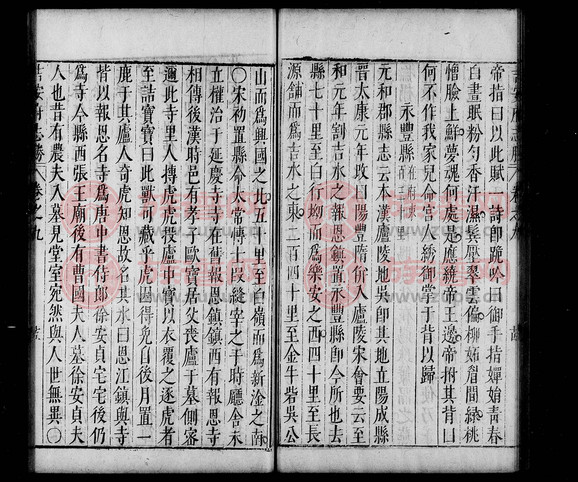 帝指曰以此賦 詩卽跪吟曰御手指嬋娟青春
白晝眠粉勻香汗濕鬢壓翠雲偏柳妬眉間綠桃
憎臉上鮮夢魂何處是應繞帝王邊帝拊其背曰
何不作我家兒命宮人綉御掌于背以歸
永豐縣
元和郡縣志云本漢廬陵地吳卽其地立陽成縣
晉太康元年攺曰陽豐隋併入廬陵宋會要云至
和元年割吉水之報恩鎮置永豐縣卽今所也去
縣七十里至白行坳而爲樂安之西四十里至長
源舖而爲吉水之東二百四十里至金牛砦吳公
山而爲興國之北五十里至白嶺而爲新淦之南
〇宋初置縣命太常博士段縫宰之于時廳舍未
立權治于延慶寺寺在舊報恩鎮鎮西有報恩寺
相傳後漢時邑有孝子歐寶居父喪廬于墓側客
邇此寺里人摶虎虎投廬中寶以衣覆之逐虎者
至詰寶寶曰此獸可藏乎虎因得免自後月置一
鹿于其廬人奇虎知恩故名其水曰恩江鎮與寺
皆以報恩名寺爲唐中書侍郎徐安貞宅宅後仍
爲寺今縣西張王廟後有曹國夫人墓徐安貞夫
人也昔有農夫入墓見堂室宛然與人世無異〇
吉安府志勝 卷之九